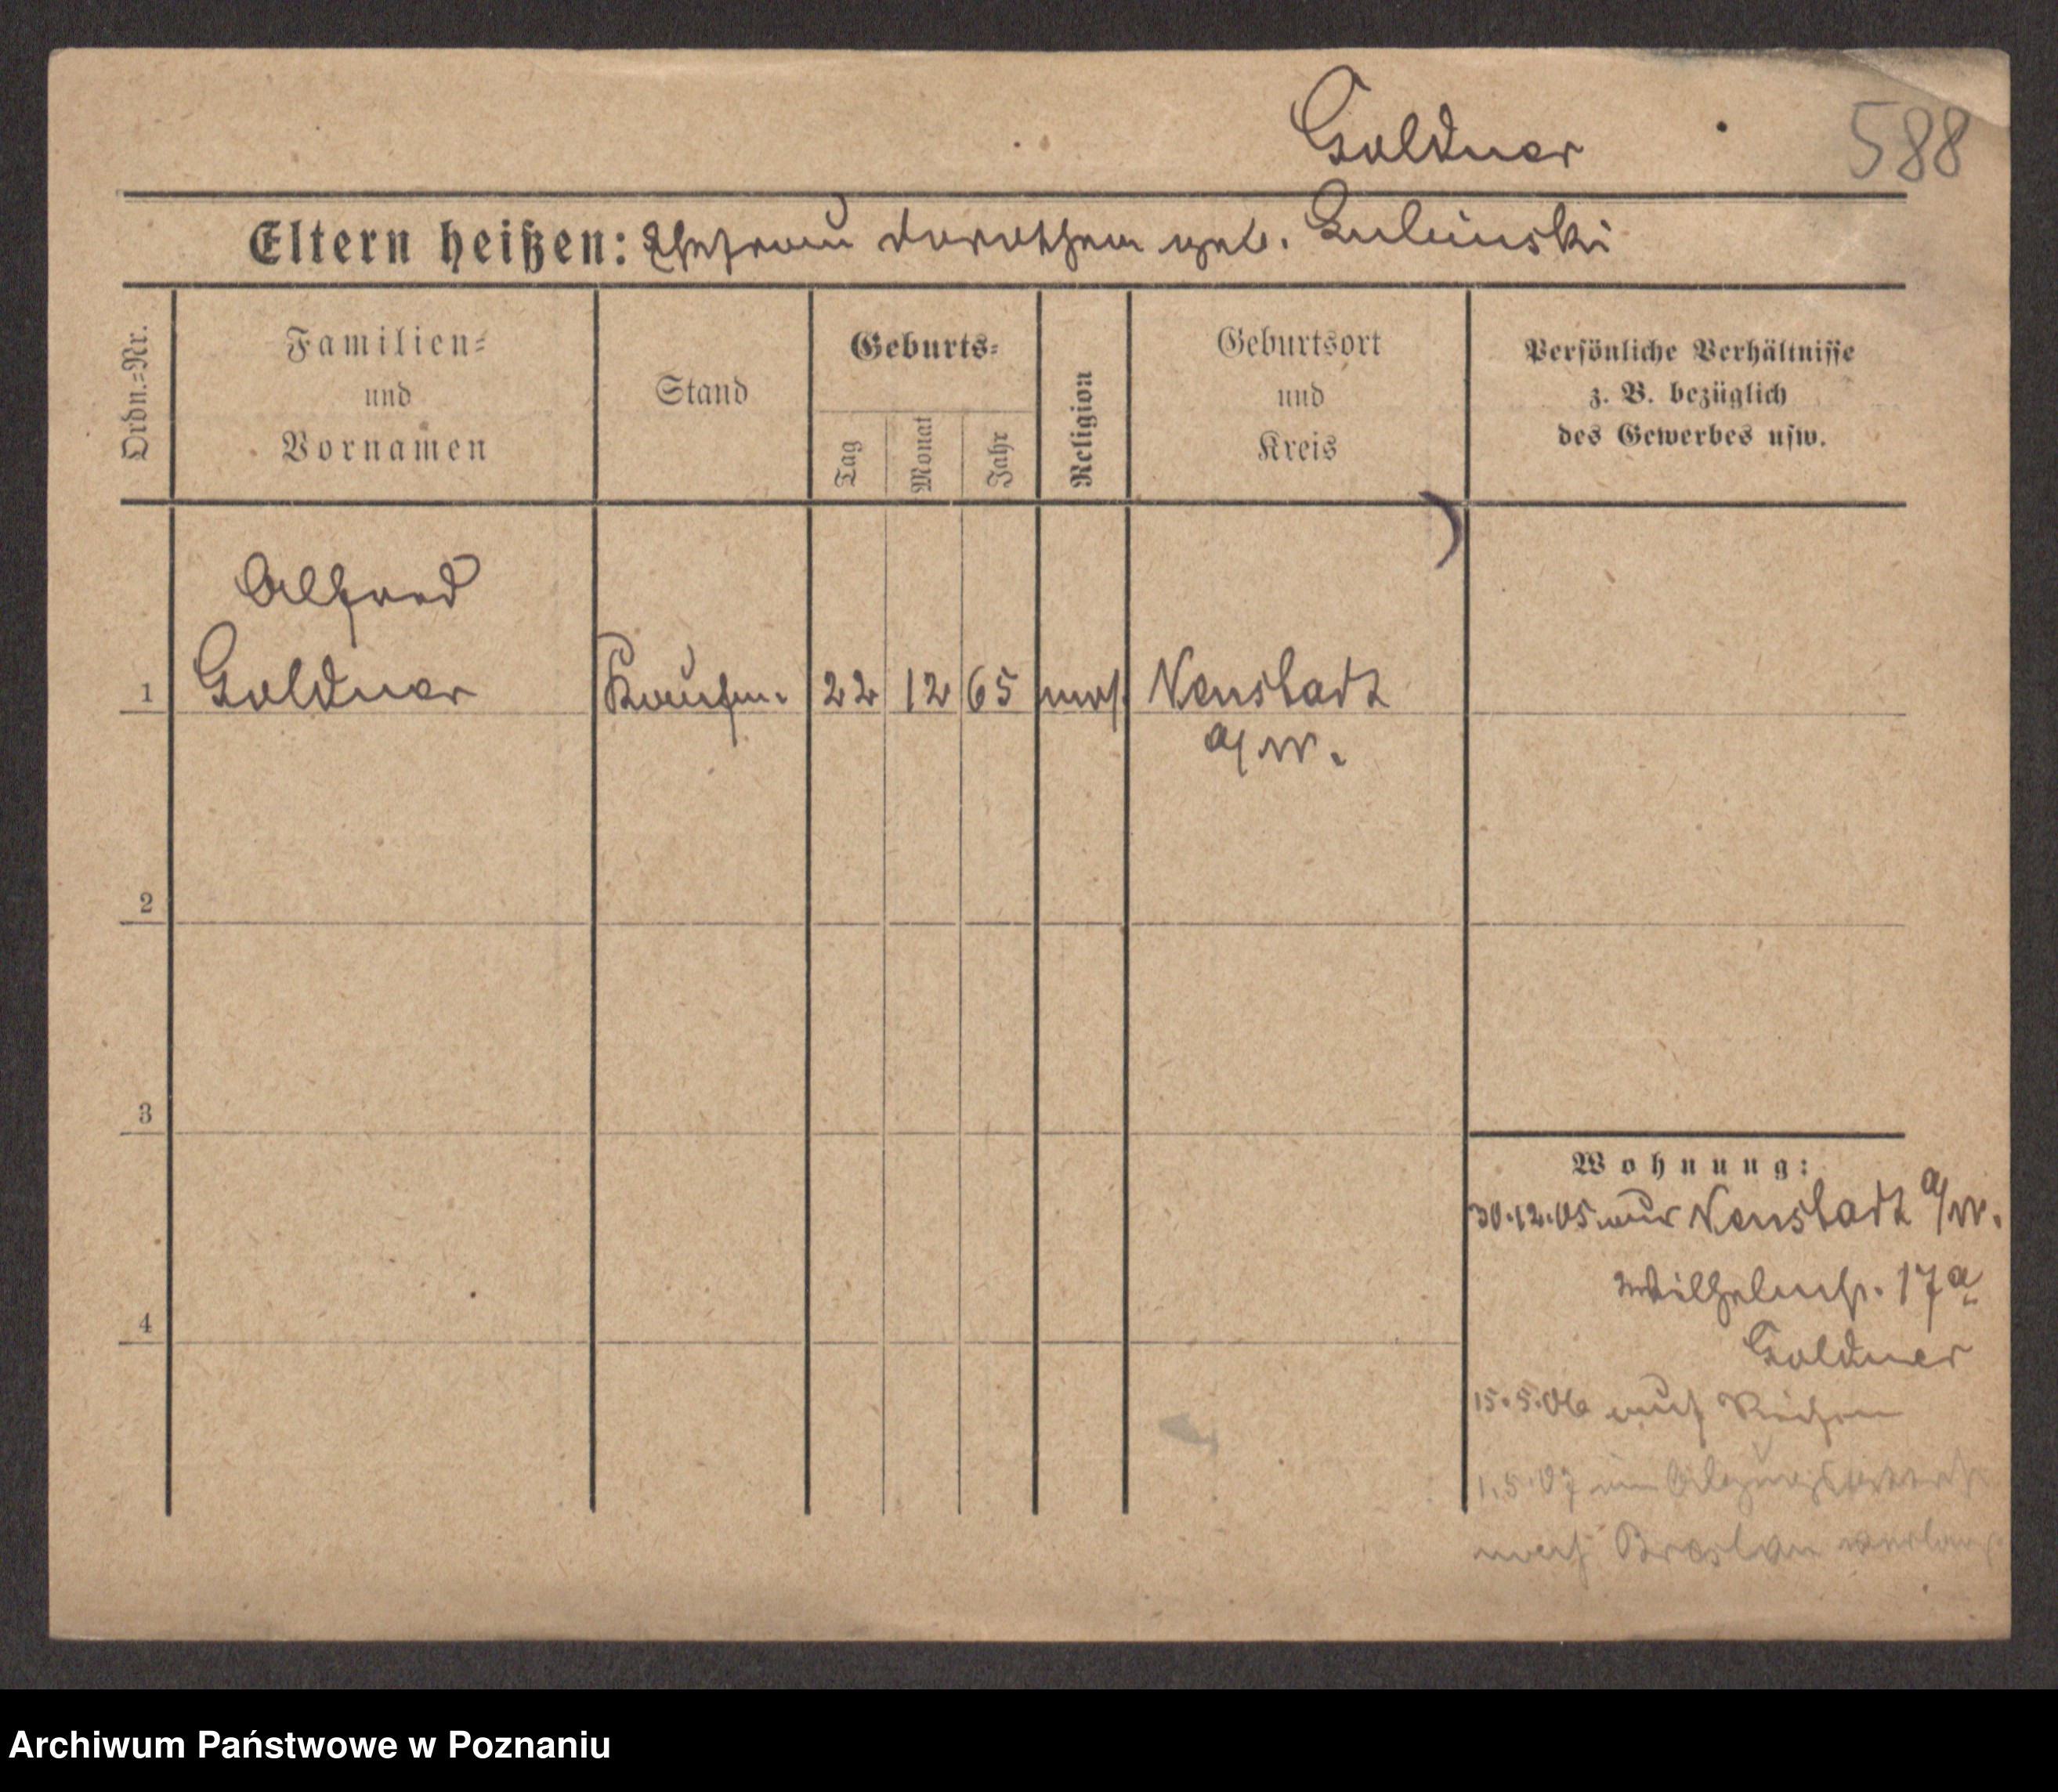 Goldner
588
Eltern heißen: Ehefrau Dorothea geb. Lubinski
Ordn.=Nr.
Familien=
und
Vornamen
Stand
Geburts=
Tag
Monat
Jahr
Religion
Geburtsort
und
Kreis
Persönliche Verhältnisse
z. B. bezüglich
des Gewerbes usw.
Alfred
1 Goldner Kaufm. 22 12 65 mos. Neustadt
a/W.
2
3
4
Wohnung:
30.12.05 aus Neustadt a/W.
Wilhelmstr. 17a
Goldner
15.5.06 auf Reisen
1.5.07 im
nach Breslau
Archiwum Państwowe w Poznaniu